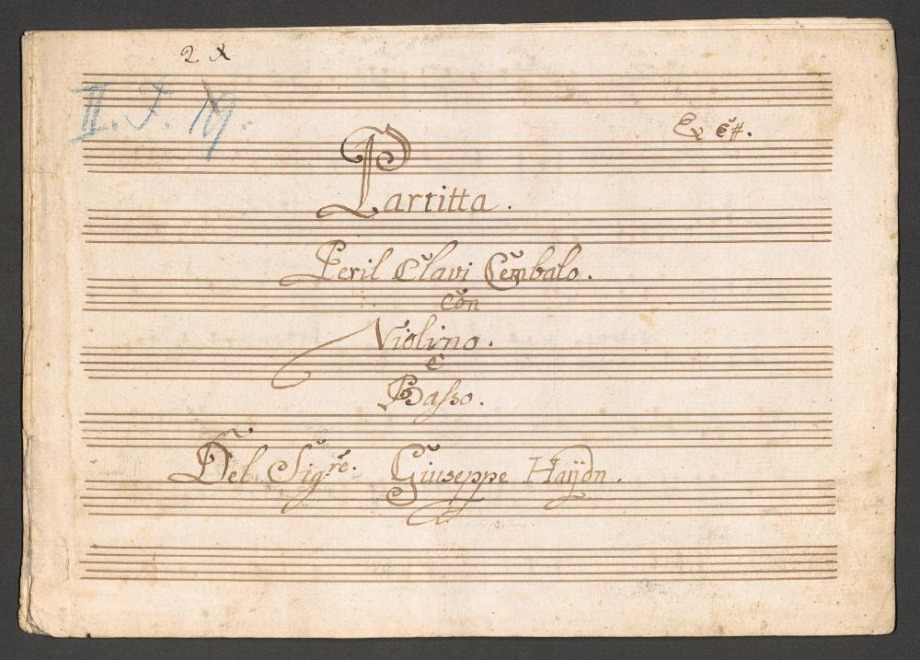 2 X
II. J. 19.
Ex c#.
Partitta.
Per il Clavi Cembalo.
Con
Violino.
e
Basso.
Del Sigre. Giuseppe Haÿdn.